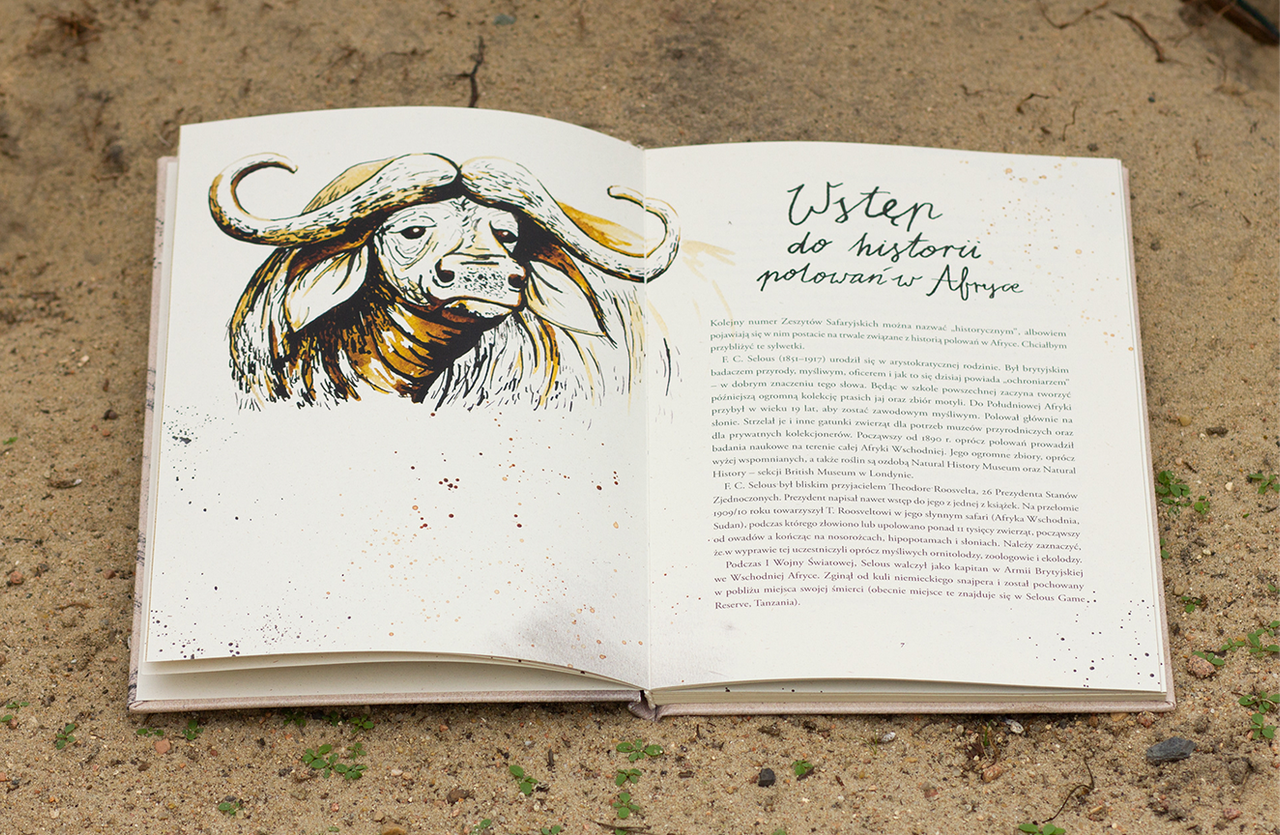 Wstęp
do historii
polowań w Afryce
Kolejny numer Zeszytów Safaryjskich można nazwać „historycznym", albowiem
pojawiają się w nim postacie na trwałe związane z historią polowań w Afryce. Chciałbym
przybliżyć te sylwetki.
F. C. Selous (1851–1917) urodził się w arystokratycznej rodzinie. Był brytyjskim
badaczem przyrody, myśliwym, oficerem i jak to się dzisiaj powiada „ochroniarzem"
– w dobrym znaczeniu tego słowa. Będąc w szkole powszechnej zaczyna tworzyć
późniejszą ogromną kolekcję ptasich jaj oraz zbiór motyli. Do Południowej Afryki
przybył w wieku 19 lat, aby zostać zawodowym myśliwym. Polował głównie na
słonie. Strzelał je i inne gatunki zwierząt dla potrzeb muzeów przyrodniczych oraz
dla prywatnych kolekcjonerów. Począwszy od 1890 r. oprócz polowań prowadził
badania naukowe na terenie całej Afryki Wschodniej. Jego ogromne zbiory, oprócz
wyżej wspomnianych, a także roślin są ozdobą Natural History Museum oraz Natural
History – sekcji British Museum w Londynie.
F. C. Selous był bliskim przyjacielem Theodore Roosvelta, 26 Prezydenta Stanów
Zjednoczonych. Prezydent napisał nawet wstęp do jego z jednej z książek. Na przełomie
1909/10 roku towarzyszył T. Roosveltowi w jego słynnym safari (Afryka Wschodnia,
Sudan), podczas którego złowiono lub upolowano ponad 11 tysięcy zwierząt, począwszy
od owadów a kończąc na nosorożcach, hipopotamach i słoniach. Należy zaznaczyć,
że w wyprawie tej uczestniczyli oprócz myśliwych ornitolodzy, zoologowie i ekolodzy.
Podczas I Wojny Światowej, Selous walczył jako kapitan w Armii Brytyjskiej
we Wschodniej Afryce. Zginął od kuli niemieckiego snajpera i został pochowany
w pobliżu miejsca swojej śmierci (obecnie miejsce te znajduje się w Selous Game
Reserve, Tanzania).
7